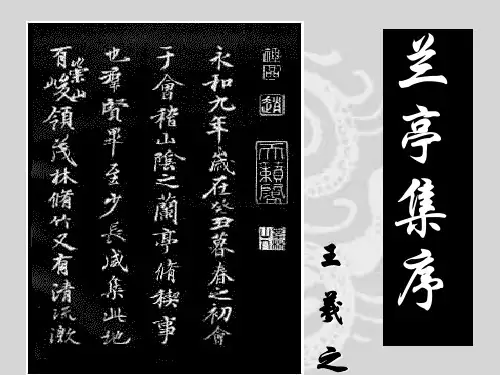 兰亭集序
王羲之
永和九年歲在癸丑暮春之初會
于會稽山陰之蘭亭脩稧事
也羣賢畢至少長咸集此地
有崇山峻領茂林脩竹又有清流激